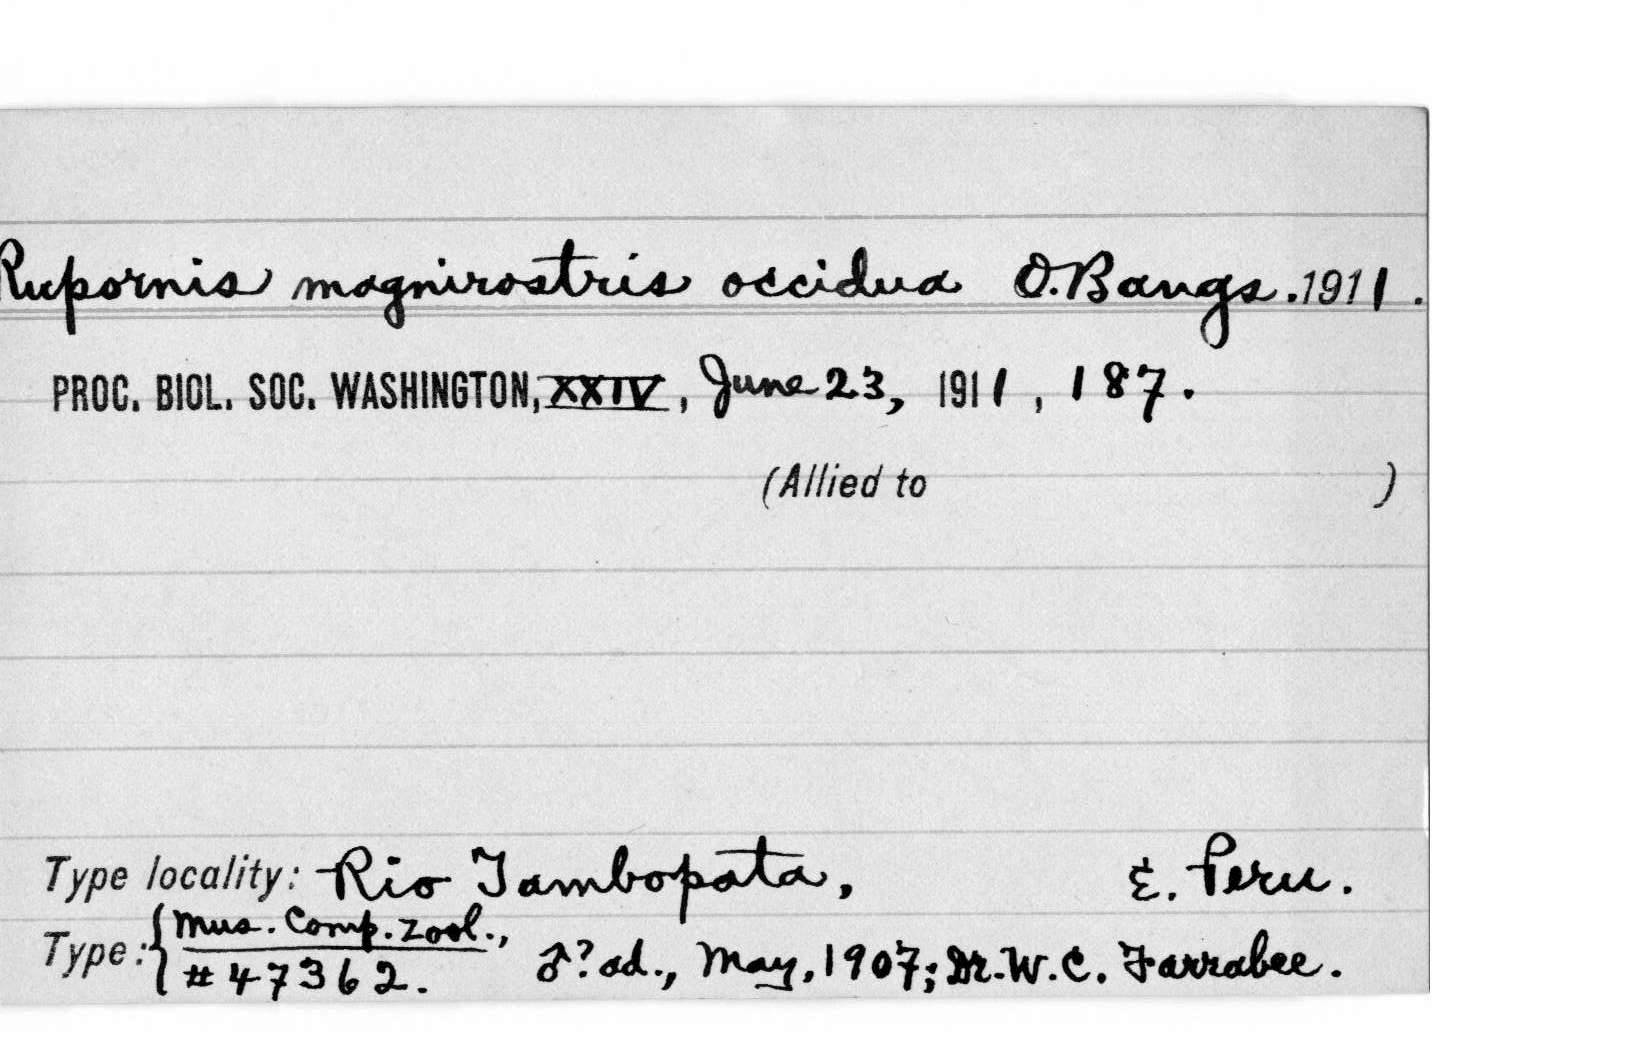 Rupornis magnirostris occidua O. Bangs. 1911.
PROC. BIOL. SOC. WASHINGTON, XXIV, June 23, 1911, 187.
(Allied to )
Type locality: Rio Tambopata, E. Peru.
Type: { Mus. Comp. Zool.,
#47362. ♂? ad., May, 1907; Dr. W. C. Farrabee.